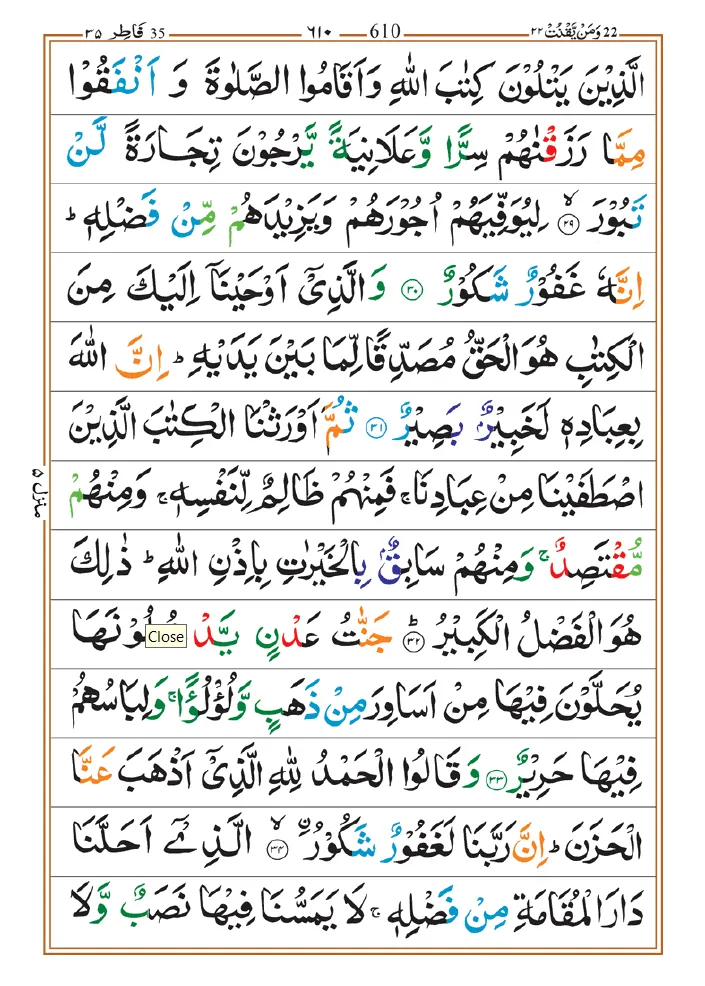 22 وَمَنْ يَّقْنُتْ ٢٢ 610 ٦١٠ 35 فَاطِر ٣٥
الَّذِيْنَ يَتْلُوْنَ كِتٰبَ اللّٰهِ وَاَقَامُوا الصَّلٰوةَ وَ اَنْفَقُوْا
مِمَّا رَزَقْنٰهُمْ سِرًّا وَّعَلَانِيَةً يَّرْجُوْنَ تِجَارَةً لَّنْ
تَبُوْرَ ۙ‏﴿۲۹﴾ لِيُوَفِّيَهُمْ اُجُوْرَهُمْ وَيَزِيْدَهُمْ مِّنْ فَضْلِهٖ ؕ
اِنَّهٗ غَفُوْرٌ شَكُوْرٌ ﴿۳۰﴾ وَالَّذِيْۤ اَوْحَيْنَاۤ اِلَيْكَ مِنَ
الْكِتٰبِ هُوَالْحَقُّ مُصَدِّقًا لِّمَا بَيْنَ يَدَيْهِ ؕ اِنَّ اللّٰهَ
بِعِبَادِهٖ لَخَبِيْرٌۢ بَصِيْرٌ ﴿۳۱﴾ ثُمَّ اَوْرَثْنَا الْكِتٰبَ الَّذِيْنَ
اصْطَفَيْنَا مِنْ عِبَادِنَا ۚ فَمِنْهُمْ ظَالِمٌ لِّنَفْسِهٖ ۚ وَمِنْهُمْ
مُّقْتَصِدٌ ۚ وَمِنْهُمْ سَابِقٌۢ بِالْخَيْرٰتِ بِاِذْنِ اللّٰهِ ؕ ذٰلِكَ
هُوَ الْفَضْلُ الْكَبِيْرُ ؕ﴿۳۲﴾ جَنّٰتُ عَدْنٍ يَّدْ
Close
يُحَلَّوْنَ فِيْهَا مِنْ اَسَاوِرَ مِنْ ذَهَبٍ وَّلُؤْلُؤًا ۚ وَلِبَاسُهُمْ
فِيْهَا حَرِيْرٌ ﴿۳۳﴾ وَقَالُوا الْحَمْدُ لِلّٰهِ الَّذِيْۤ اَذْهَبَ عَنَّا
الْحَزَنَ ؕ اِنَّ رَبَّنَا لَغَفُوْرٌ شَكُوْرُۨ ۙ﴿۳۴﴾ الَّذِيْۤ اَحَلَّنَا
دَارَ الْمُقَامَةِ مِنْ فَضْلِهٖ ۚ لَا يَمَسُّنَا فِيْهَا نَصَبٌ وَّلَا
منزل ۵